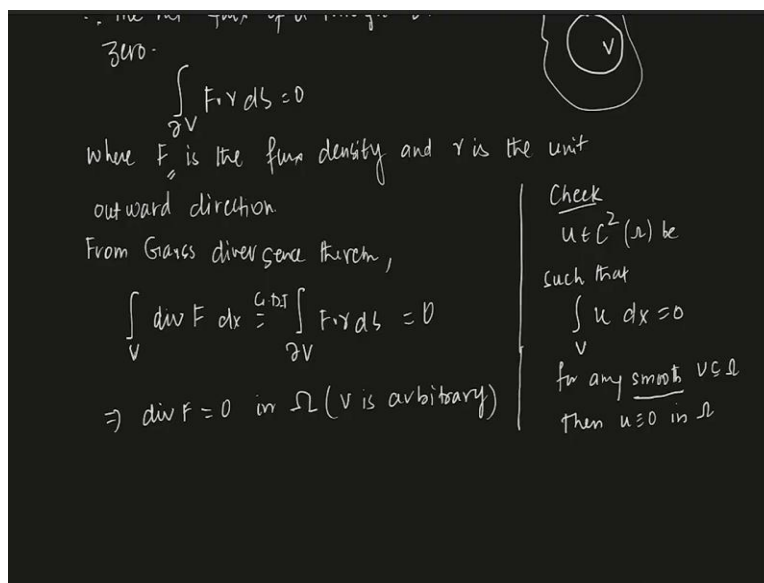 zero.
∫ F.γ ds = 0
∂V
where F is the flux density and γ is the unit
outward direction.
From Gauss divergence therem,
∫ div F dx = ∫ F.γ ds = 0
G.D.T
V ∂V
⇒ div F = 0 in Ω (V is arbitrary)
V
Check
u ∈ C²(Ω) be
such that
∫ u dx = 0
V
for any smooth V ⊆ Ω
then u ≡ 0 in Ω